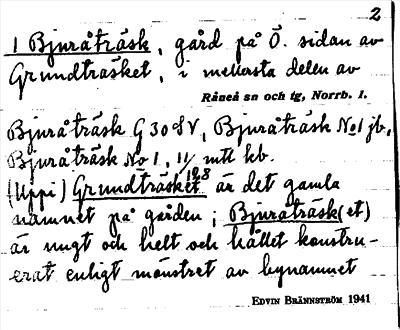 2
1 Bjuråträsk, gård på Ö. sidan av
Grundträsket, i mellersta delen av
Råneå sn och tg, Norrb. l.
Bjuråträsk G 30 SV, Bjuråträsk No1 jb,
Bjuråträsk No 1, 11/ mtl kb.
128
(Uppi) Grundträsket är det gamla
namnet på gården; Bjuråträsk(et)
är ungt och helt och hållet konstru-
erat enligt mönstret av bynamnet
EDVIN BRÄNNSTRÖM 1941